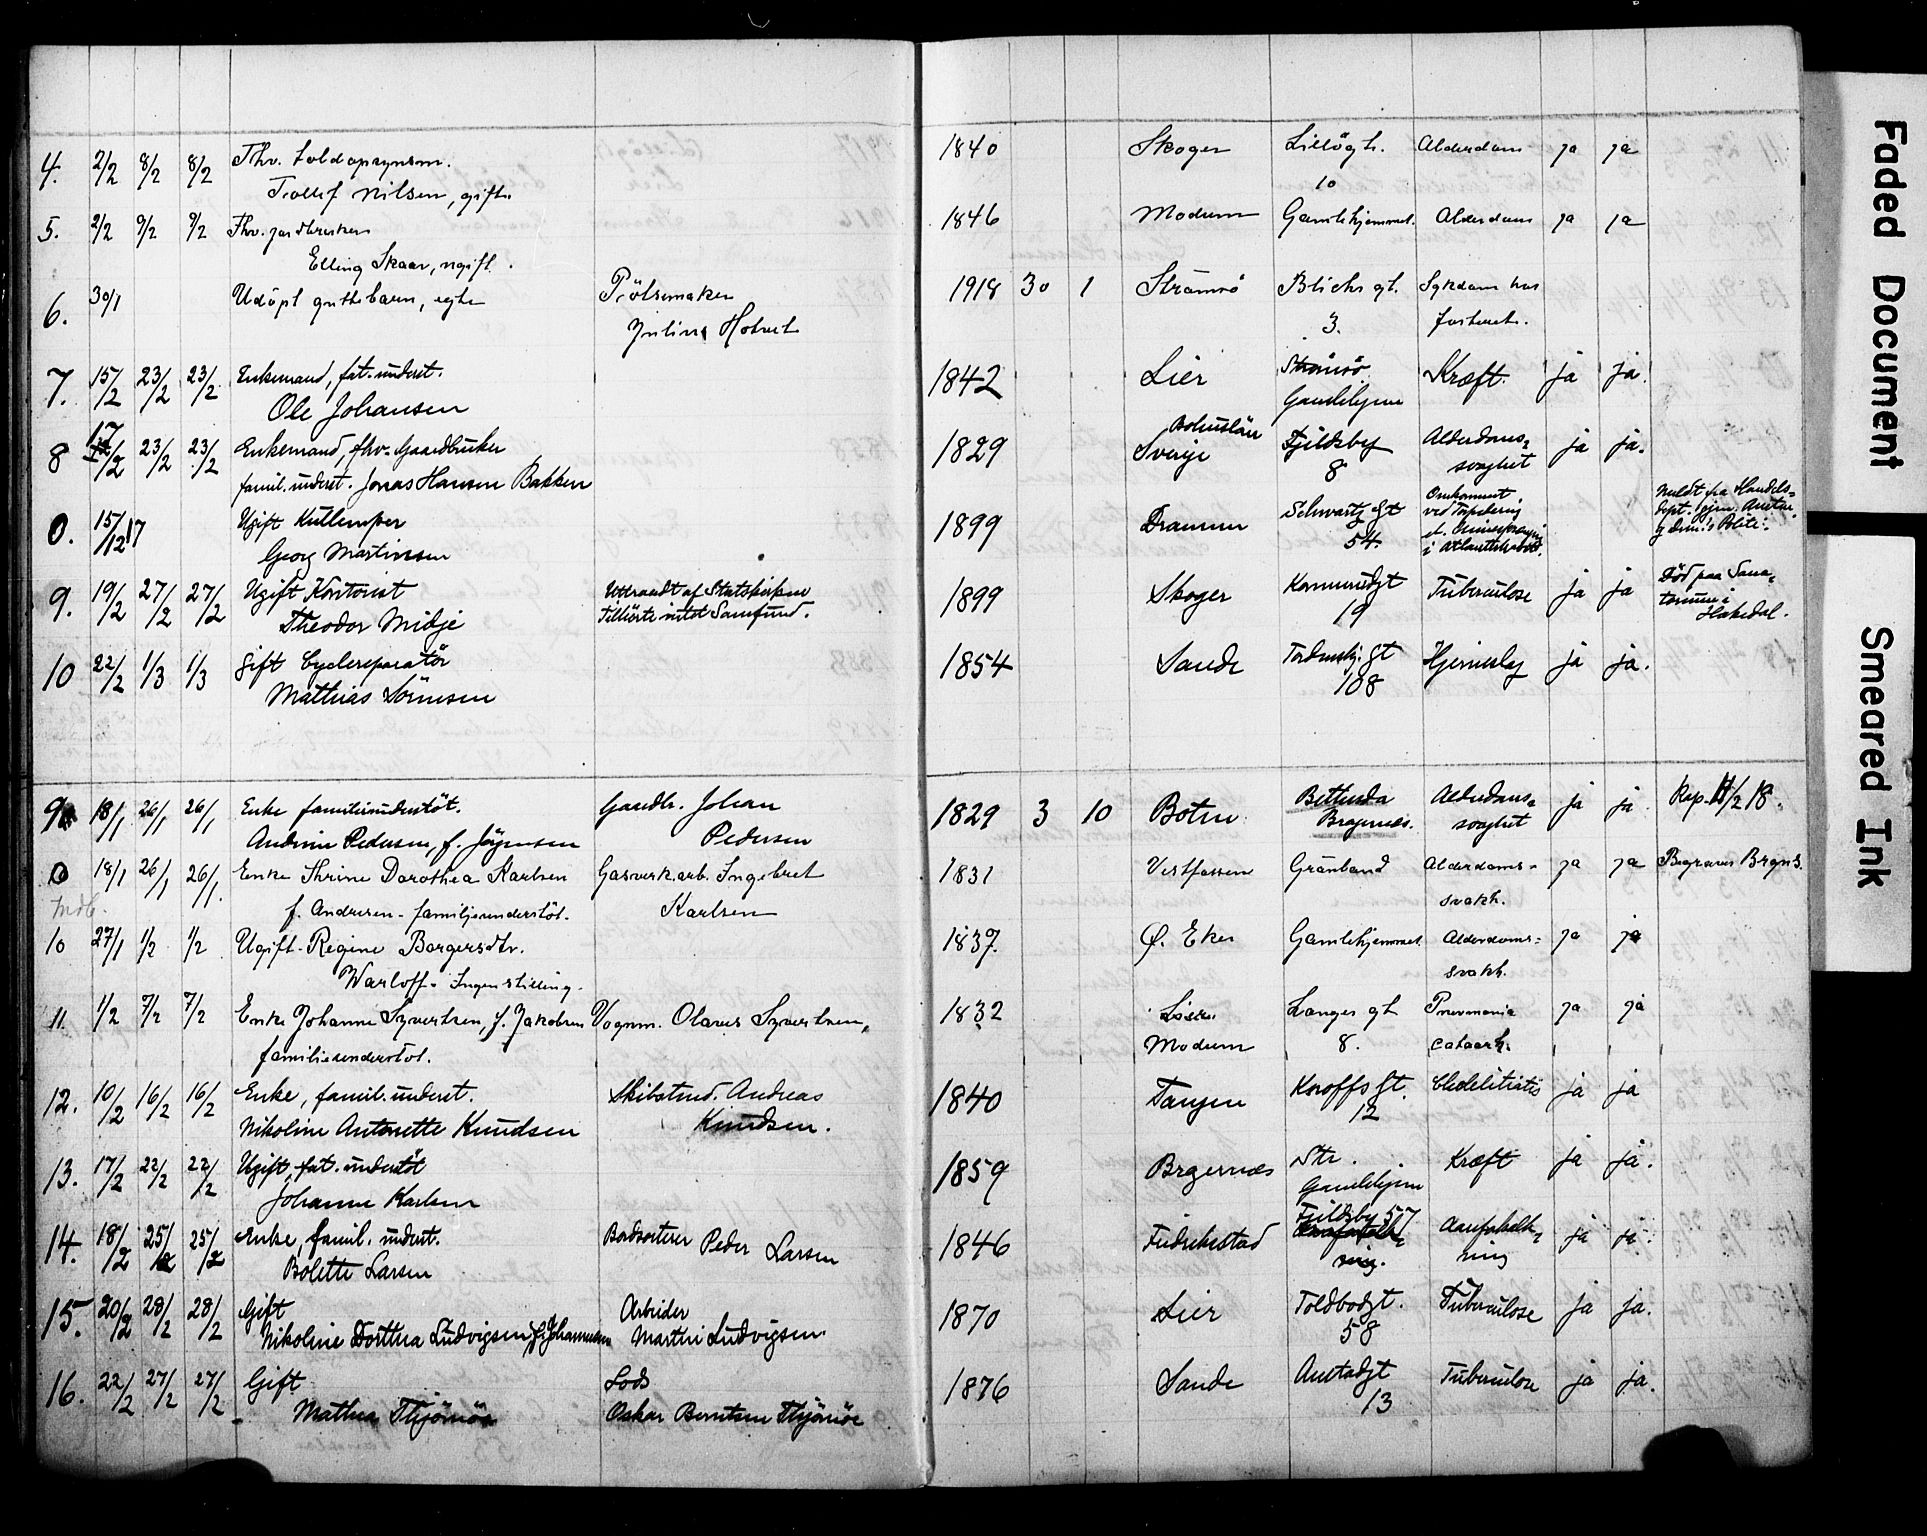 4. 2/2 8/2 8/2 Fhv. toldopsynsm. 1840 Skoger Lilløgt. Alderdom ja ja
Trollef Nilsen, gift. 10
5. 2/2 9/2 9/2 Fhv. gardbruker 1846 Modum Gamlehjemmet. Alderdom ja ja
Elling Skaar, ugift.
6. 30/1 Udøpt guttebarn, egte Pølsemaker 1918 30 1 Strømsø Blichs gt. Sykdom hos
Julius Holm 3. fosteret.
7. 15/2 23/2 23/2 Enkemand, fat. underst. 1842 Lier Strømsø Kræft. ja ja.
Ole Johansen Gamlehjem
8 17/2 23/2 23/2 Enkemand, fhv. Gaardbruker 1829 Bohuslän Fjeldsby Alderdoms= ja ja.
famil. underst. Jonas Hansen Bakken Sverige 8 svaghet
0. 15/12 17 Ugift Kullemper 1899 Drammen Schwartz gt Omkommet Meldt fra Handels=
Georg Martinsen 54. ved Torpedering
i Atlanterhavet. Politi.
9. 19/2 27/2 27/2 Ugift Kontorist Uttraadt af Statskirken 1899 Skoger Konnerudgt Tuberculose ja ja Død paa Sana=
Theodor Midje Tilhørte intet Samfund. 19 torium i
Hakedal.
10 22/2 1/3 1/3 Gift Cyclereparatør 1854 Sande Tordenskj. gt Hjerneslag ja ja.
Mathias Sørensen 108
9 18/1 26/1 26/1 Enke familieunderstøt. Gaardbr. Johan 1829 3 10 Botne Bethesda Alderdoms= ja ja Rap. 11/2 18.
Andrine Pedersen, f. Jørgensen Pedersen Bragernes. svaghet
0 18/1 26/1 26/1. Enke Thrine Dorothea Karlsen Gasverksarb. Ingebret 1831 Vestfossen Grønland Alderdoms- ja ja Begraves Brgns.
f. Andresen - familjeunderstøt. Karlsen svakh.
10 27/1 1/2 1/2 Ugift - Regine Borgersdtr. 1837. Ø. Eker Gamlehjemmet Alderdoms= ja ja
Warloff - Ingen stilling. svakh.
11. 1/2 7/2 7/2 Enke Johanne Syvertsen, f. Jakobsen Vognm. Olaves Syvertsen, 1832 Lier. Langes gt Pneumonia ja ja
familieunderstøt. Modum 8. catarrh.
12. 10/2 16/2 16/2 Enke, famil. underst. Skibstmd. Andreas 1840 Tangen Kroffs gt. ja ja
Nikoline Antonette Knudsen Knudsen. 12
13. 17/2 22/2 22/2 Ugift, fat. understøt 1859 Bragernes Str. Kræft ja ja.
Johanne Karlsen Gamlehjem
14. 18/2 25/2 25/2 Enke, famil. underst. Bordsorterer Peder Larsen 1846 Fredrikstad Fjeldsby 57 Aareforkalk= ja ja.
Bolette Larsen ning
15. 20/2 28/2 28/2 Gift Arbeider 1870 Lier Toldbodgt. Tuberculose ja ja.
Nikoline Dorthea Ludvigsen f. Johannesen Marthin Ludvigsen 58
16. 22/2 27/2 27/2 Gift Lods 1876 Sande Austadgt Tuberculose ja ja.
Mathea Thjømøe Oskar Berntsen Thjømøe 13
Faded Document
Smeared Ink